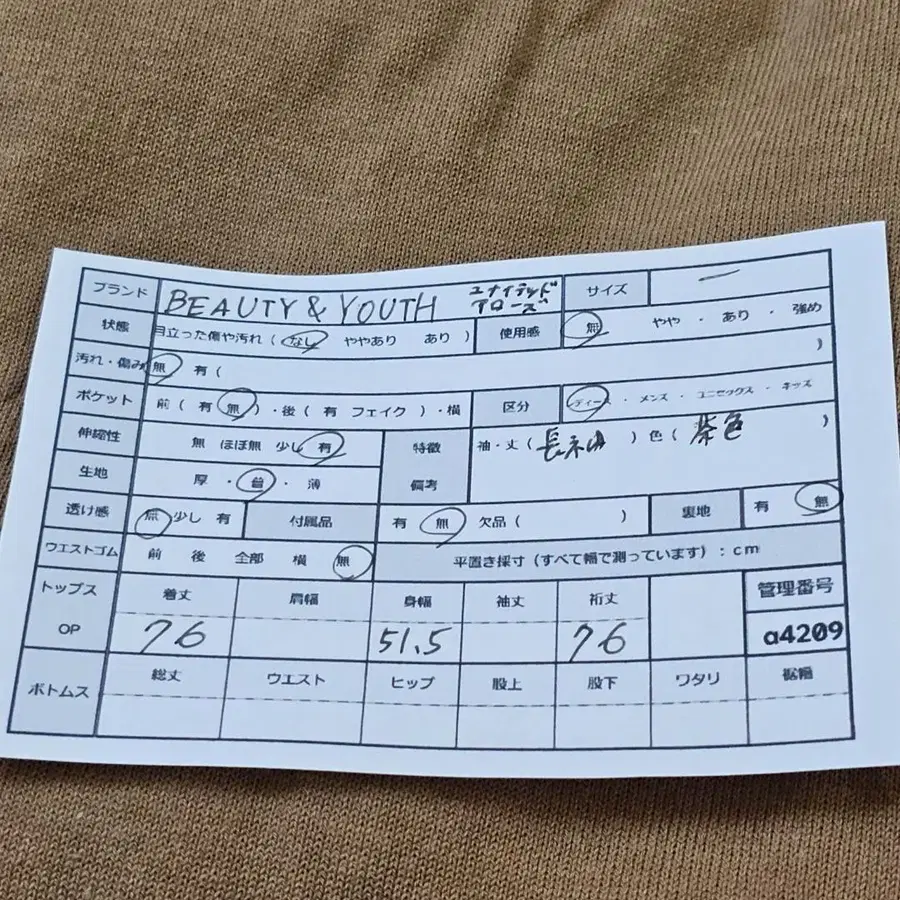 ブランド BEAUTY & YOUTH ユナイテッド アローズ サイズ ー
状態 目立った傷や汚れ ( なし ややあり あり ) 使用感 無 やや ・ あり ・ 強め
汚れ・傷み 無 有 ( )
ポケット 前 ( 有 無 ) ・後 ( 有 フェイク ) ・横 区分 ディース ・ メンズ ・ ユニセックス ・ キッズ
伸縮性 無 ほぼ無 少し 有 特徴 備考 袖・丈 ( 長ネyu ) 色 ( 茶色 )
生地 厚 ・ 普 ・ 薄
透け感 無 少し 有 付属品 有 無 欠品 ( ) 裏地 有 無
ウエストゴム 前 後 全部 横 無 平置き採寸 (すべて幅で測っています) : cm
トップス OP 着丈 肩幅 身幅 袖丈 裄丈 管理番号
76 51.5 76 a4209
ボトムス 総丈 ウエスト ヒップ 股上 股下 ワタリ 裾幅